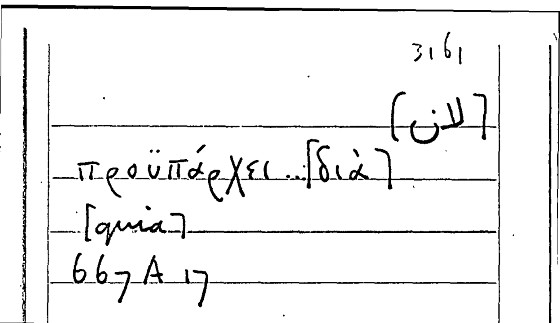 3161
[لان]
προϋπάρχει..[διὰ]
[quia]
667 A 17